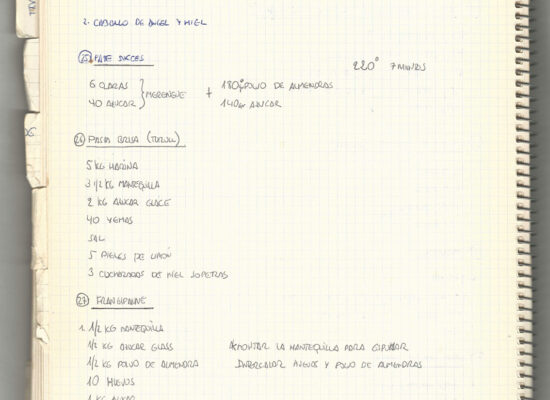 2. CABELLO DE ANGEL Y MIEL
25 PATE SUCCES
220° 7 MINUTOS
6 CLARAS
40 AZUCAR } MERENGUE + 180gr POLVO DE ALMENDRAS
140gr AZUCAR
26 PASTA BRISA (TORULL)
5 KG HARINA
3 1/2 KG MANTEQUILLA
2 KG AZUCAR GLACE
40 YEMAS
SAL
5 PIELES DE LIMON
3 CUCHARADAS DE MIEL SOPERAS
27 FRANGIPANE
1. 1/2 KG MANTEQUILLA
1/2 KG AZUCAR GLASS MONTAR LA MANTEQUILLA PARA
1/2 KG POLVO DE ALMENDRA INTERCALAR HUEVOS Y POLVO DE ALMENDRAS
10 HUEVOS
1 KG AZUCAR